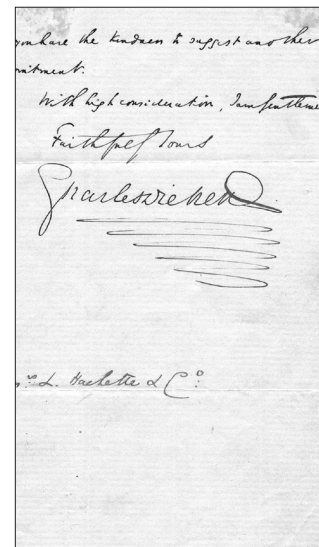 you have the kindness to suggest another
ointment.
With high consideration, I am gentleme
Faithfully Yours
Charles Dickens
rs L. Hachette & Co.